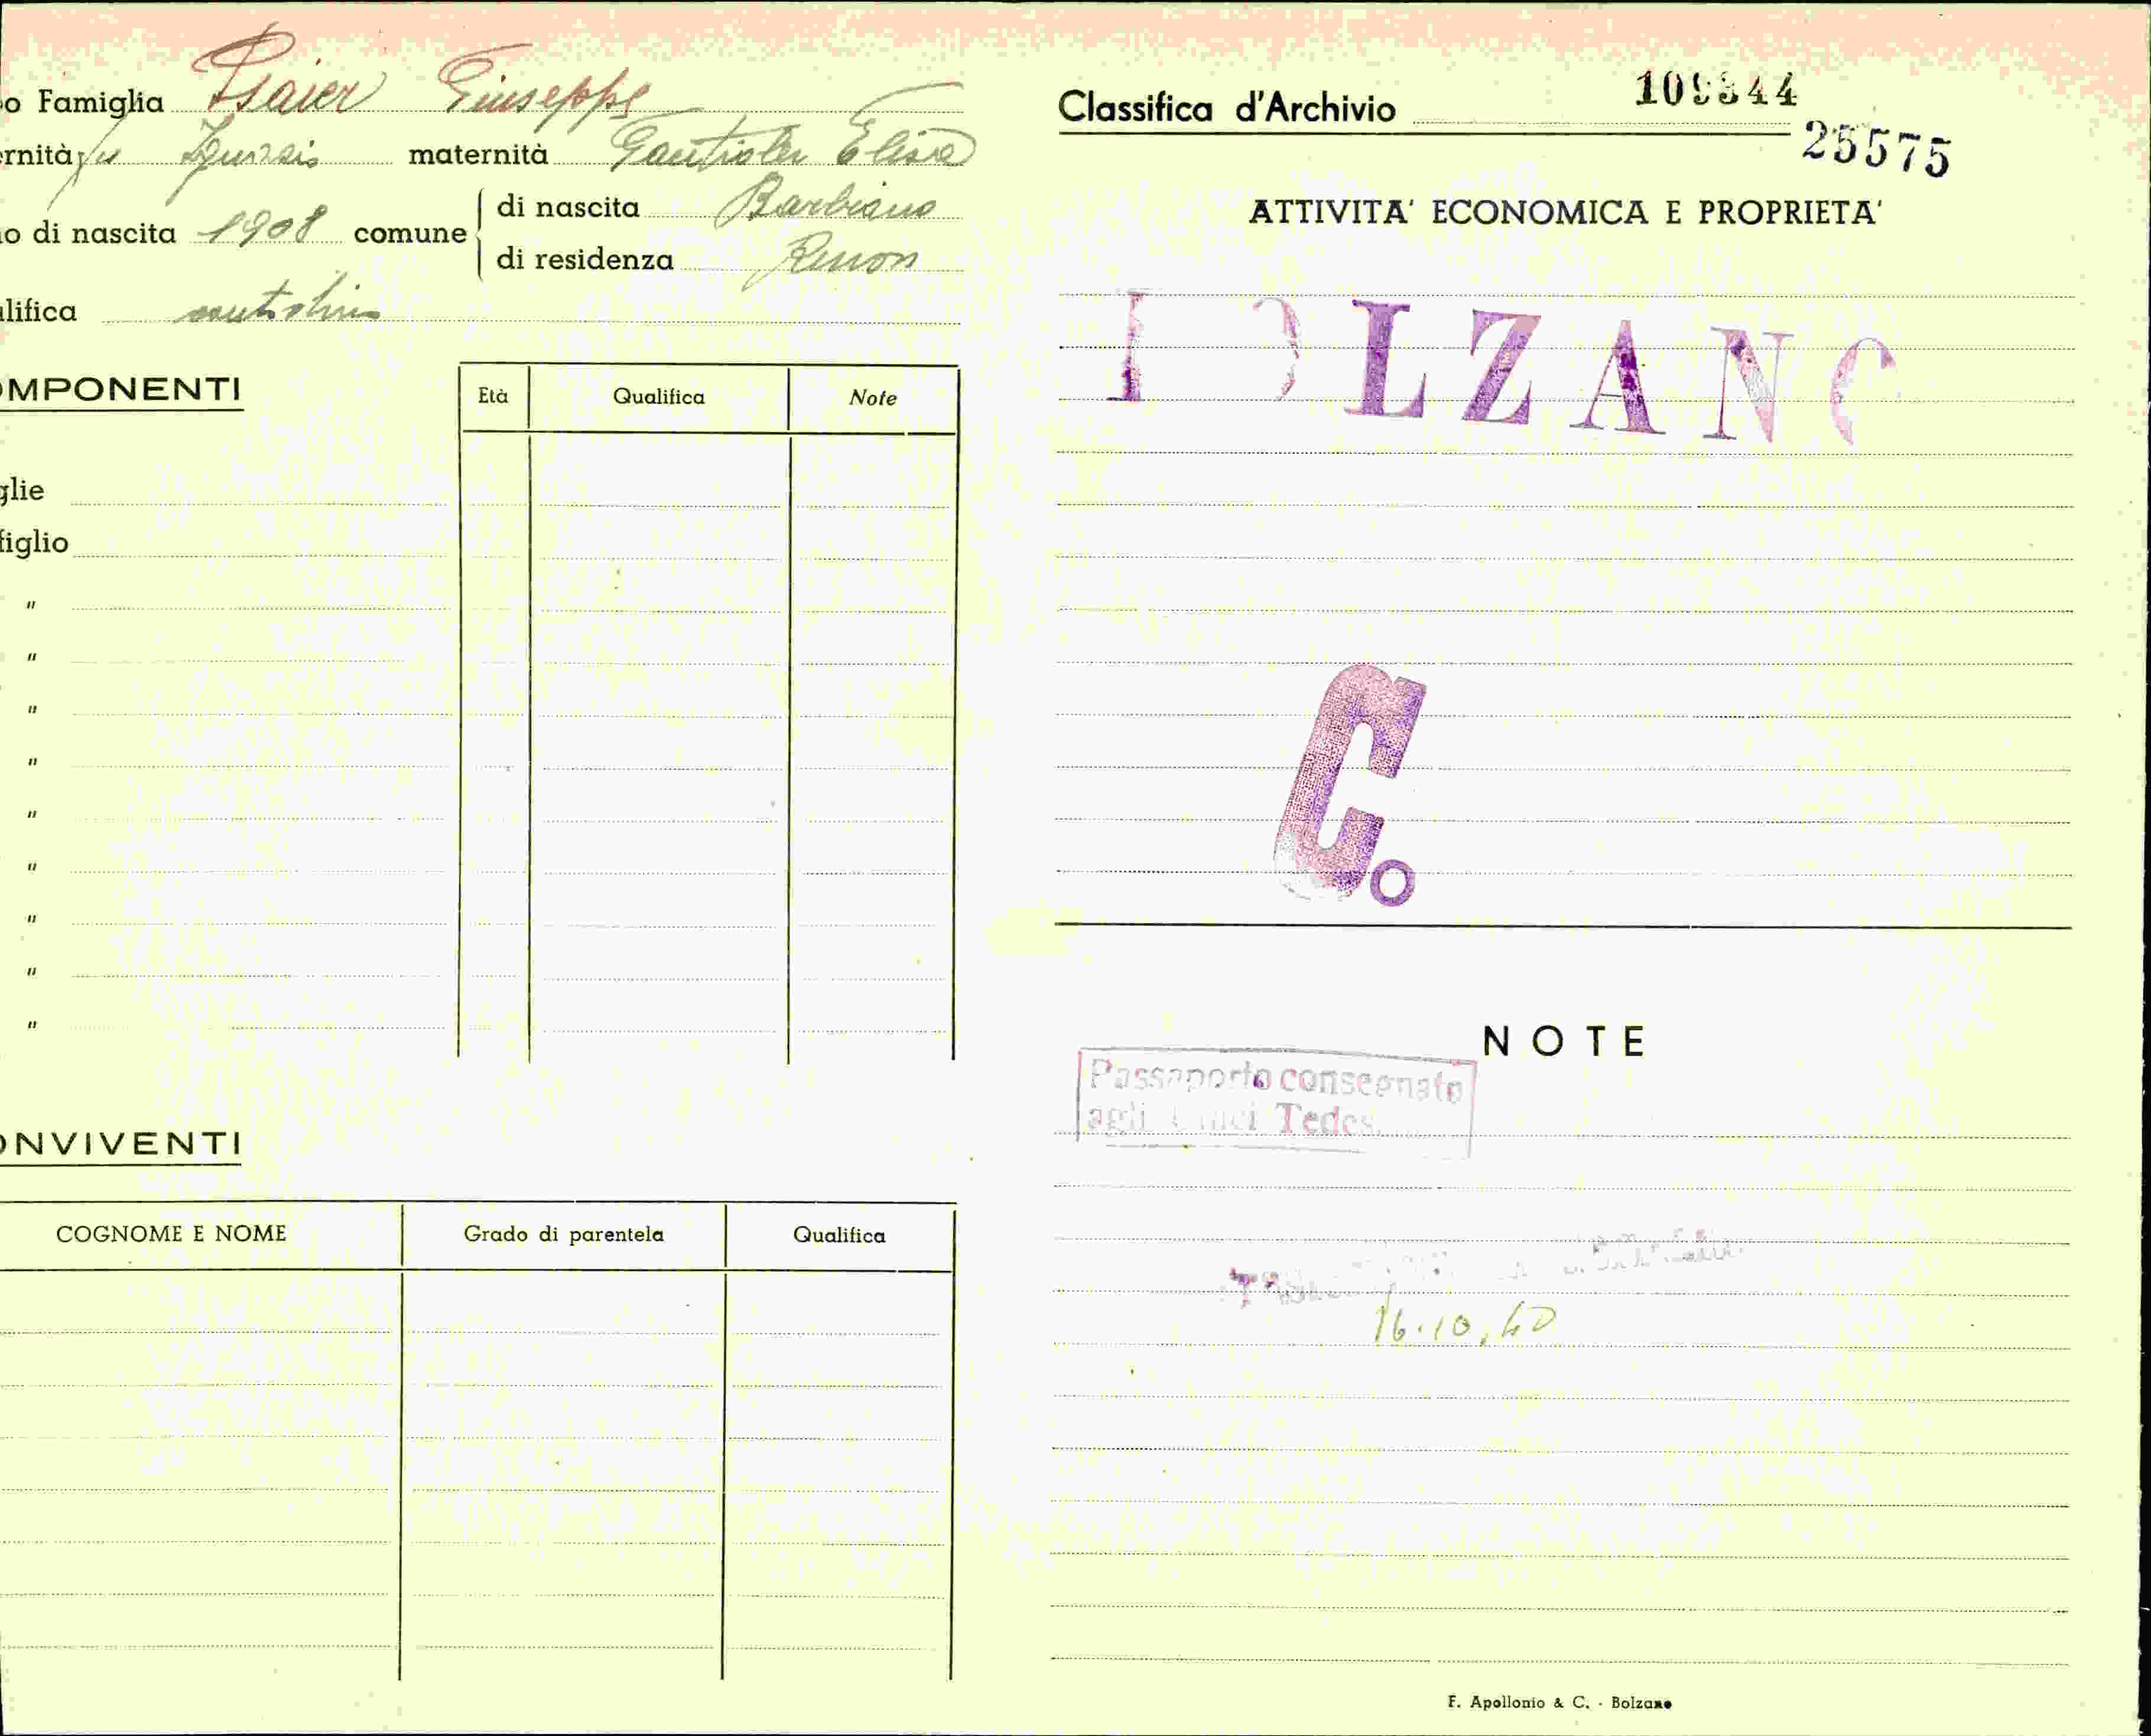 o Famiglia Psaier Giuseppe
rnità fu maternità Gantioler Elisa
o di nascita 1908 comune di nascita Barbiano
di residenza Renon
lifica
OMPONENTI
Età Qualifica Note
glie
figlio
"
"
"
"
"
"
"
"
"
ONVIVENTI
COGNOME E NOME Grado di parentela Qualifica
Classifica d'Archivio 109344
25575
ATTIVITA' ECONOMICA E PROPRIETA'
BOLZANO
C.
NOTE
Passaporto consegnato
agli Uffici Tedes.
16.10.40
F. Apollonio & C. - Bolzano